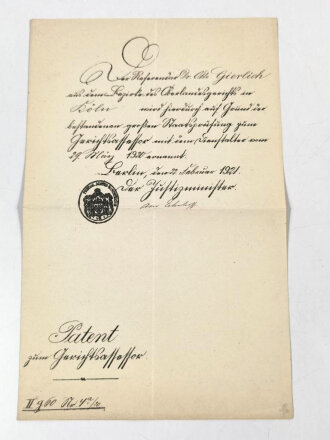 Der Referendar Dr. Otto Gierlich
aus dem Bezirke des Oberlandesgerichts in
Köln wird hierdurch auf Grund der
bestandenen großen Staatsprüfung zum
Gerichtsassessor mit dem Dienstalter vom
29. März 1920 ernannt.
Berlin, den Februar 1921.
Der Justizminister.
Patent
zum Gerichtsassessor.
II g 60 Nr.